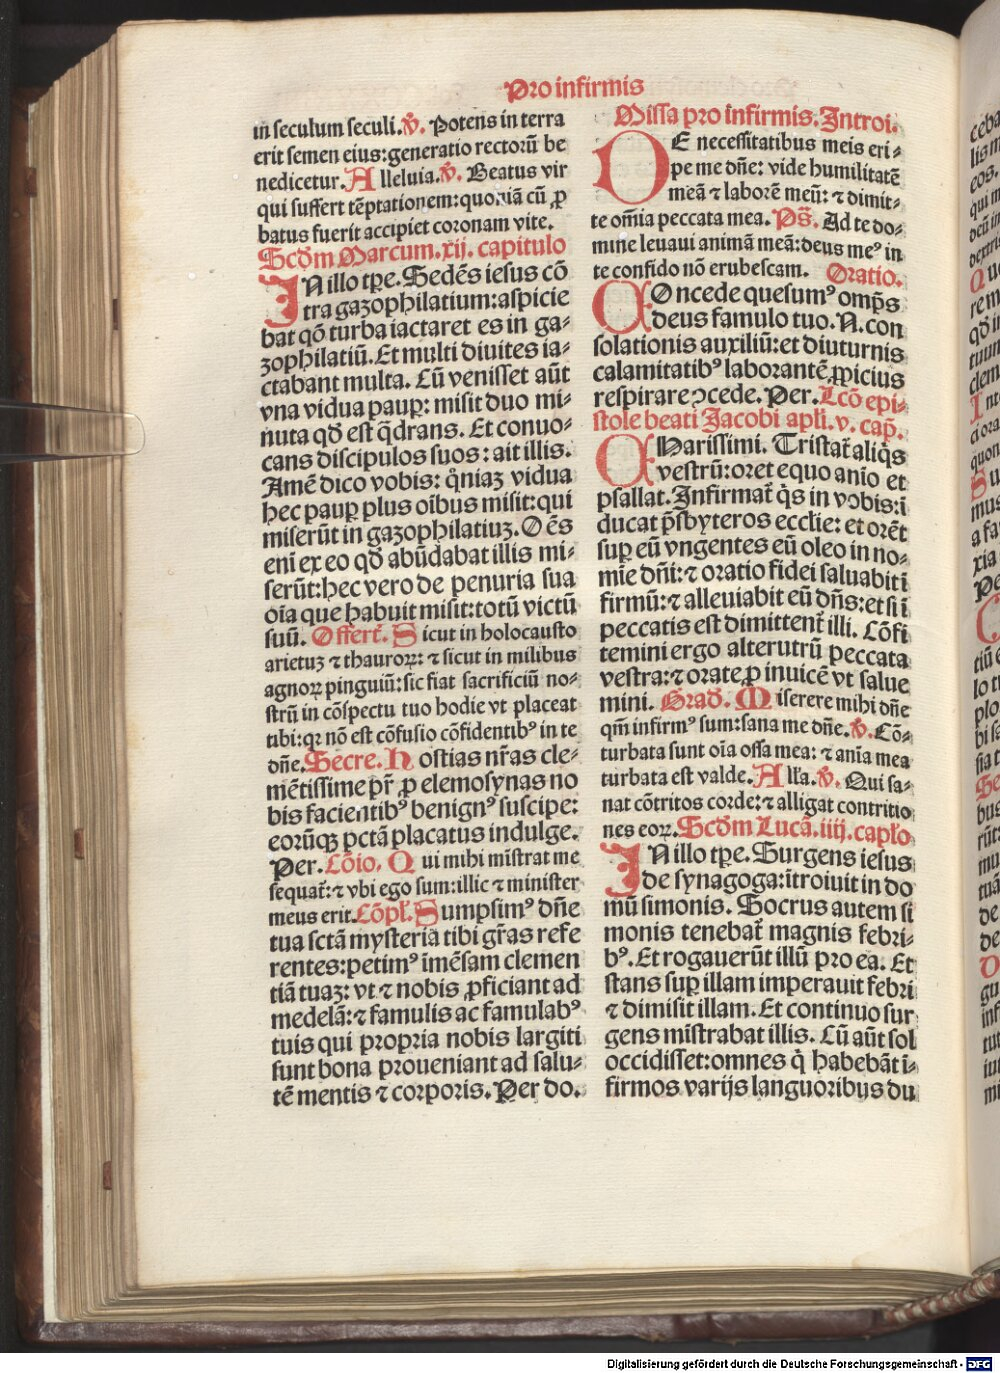 Pro infirmis
in seculum seculi. ℣. Potens in terra
erit semen eius: generatio rectorū be
nedicetur. Alleluia. ℣. Beatus vir
qui suffert tēptationem: quoniā cū ꝓ
batus fuerit accipiet coronam vite.
Scd̄m Marcum. xij. capitulo
IN illo tp̄e. Sedēs iesus cō
tra gazophilatium: aspicie
bat qō turba iactaret es in ga⸗
zophilatiū. Et multi diuites ia⸗
ctabant multa. Cū venisset aūt
vna vidua paup̲: misit duo mi⸗
nuta qd̄ est q̄drans. Et conuo⸗
cans discipulos suos: ait illis.
Amē dico vobis: q̄niaꝫ vidua
hec paup̲ plus oībus misit: qui
miserūt in gazophilatiuꝫ. Oēs
enī ex eo qd̄ abūdabat illis mi⸗
serūt: hec vero de penuria sua
oīa que habuit misit: totū victū
suū. Offert̄. Sicut in holocausto
arietuꝫ ⁊ thauroꝝ: ⁊ sicut in milibus
agnoꝝ pinguiū: sic fiat sacrificiū no⸗
strū in cōspectu tuo hodie vt placeat
tibi: qꝛ nō est cōfusio cōfidentibꝰ in te
dn̄e. Secre. Hostias nr̄as cle⸗
mētissime pr̄ ꝓ elemosynas no
bis facientibꝰ benignꝰ suscipe:
eorūqꝫ pctā placatus indulge.
Per. Cōio. Qui mihi mīstrat me
sequat̄: ⁊ vbi ego sum: illic ⁊ minister
meus erit. Cōpl̄. Sumpsimꝰ dn̄e
tua sctā mysteria tibi gr̄as refe
rentes: petimꝰ īmēsam clemen
tiā tuaꝫ: vt ⁊ nobis ꝓficiant ad
medelā: ⁊ famulis ac famulabꝰ
tuis qui propria nobis largiti
sunt bona proueniant ad salu⸗
tē mentis ⁊ corporis. Per do.
Missa pro infirmis. Introi.
DE necessitatibus meis eri⸗
pe me dn̄e: vide humilitatē
meā ⁊ laborē meū: ⁊ dimit⸗
te om̄ia peccata mea. Ps̄. Ad te do⸗
mine leuaui animā meā: deus meꝰ in
te confido nō erubescam. Oratio.
COncede quesumꝰ omp̄s
deus famulo tuo. N. con
solationis auxiliū: et diuturnis
calamitatibꝰ laborantē ꝓpicius
respirare ↄcede. Per. Lcō epi⸗
stole beati Jacobi apl̄i. v. cap̄.
CHarissimi. Tristat̄ aliq̄s
vestrū: oret equo anio et
psallat. Infirmat̄ q̄s in vobis: ī
ducat p̄sbyteros ecclie: et orēt
sup̲ eū vngentes eū oleo in no⸗
mīe dn̄i: ⁊ oratio fidei saluabit ī
firmū: ⁊ alleuiabit eū dn̄s: et si ī
peccatis est dimittent̄ illi. Cōfi
temini ergo alterutrū peccata
vestra: ⁊ orate ꝓ inuicē vt salue
mini. Grad̄. Miserere mihi dn̄e
qm̄ infirmꝰ sum: sana me dn̄e. ℣. Cō⸗
turbata sunt oīa ossa mea: ⁊ anīa mea
turbata est valde. All'a. ℣. Qui sa⸗
nat cōtritos corde: ⁊ alligat contritio
nes eoꝝ. Scd̄m Lucā. iiij. capl̄o
IN illo tp̄e. Surgens iesus
de synagoga: ītroiuit in do
mū simonis. Socrus autem si
monis tenebat̄ magnis febri⸗
bꝰ. Et rogauerūt illū pro ea. Et
stans sup̲ illam imperauit febri
⁊ dimisit illam. Et continuo sur
gens mīstrabat illis. Cū aūt sol
occidisset: omnes q̄ habebāt ī⸗
firmos varijs languoribus du
Digitalisierung gefördert durch die Deutsche Forschungsgemeinschaft - DFG